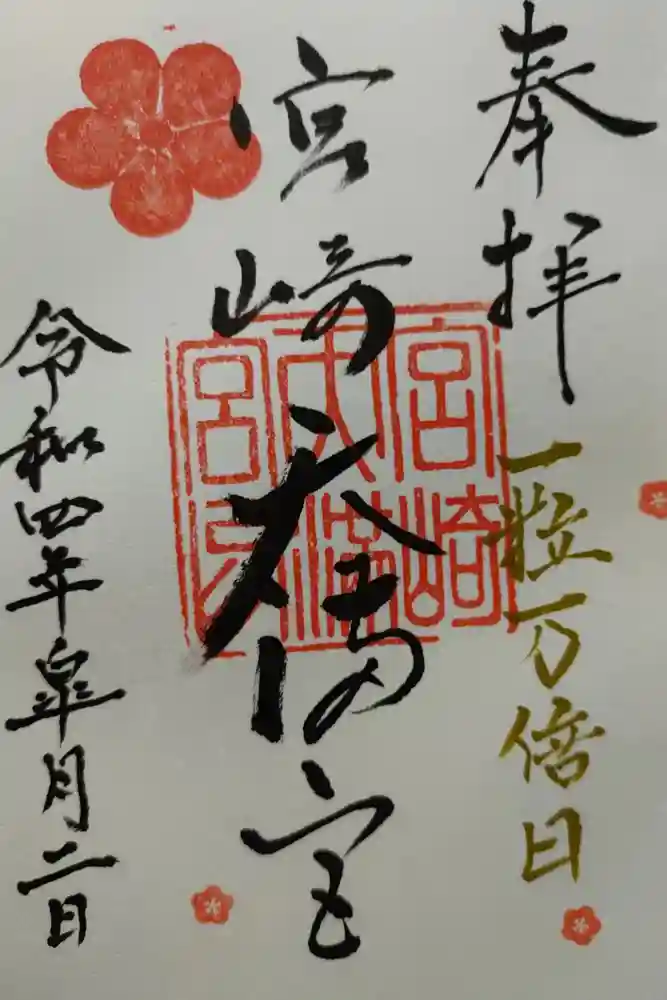 奉拝
一粒万倍日
宮崎天満宮
宮崎
天満
宮印
令和四年皐月二日